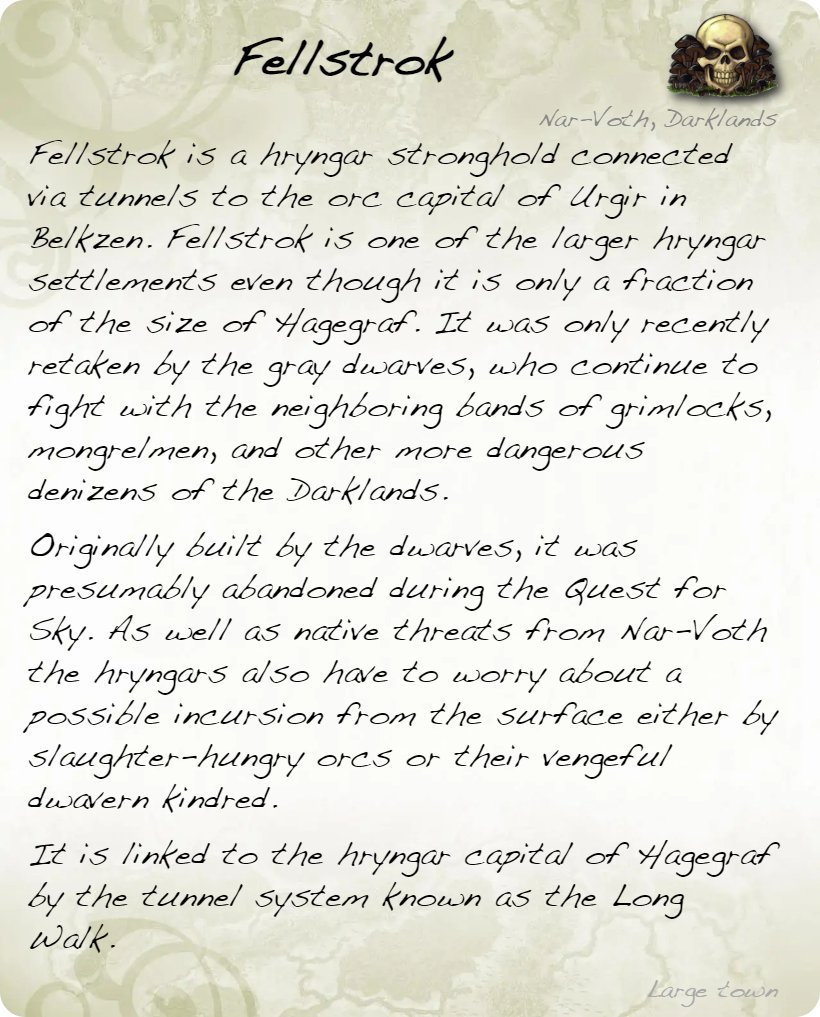 Fellstrok
Nar-Voth, Darklands
Fellstrok is a hryngar stronghold connected
via tunnels to the orc capital of Urgir in
Belkzen. Fellstrok is one of the larger hryngar
settlements even though it is only a fraction
of the size of Hagegraf. It was only recently
retaken by the gray dwarves, who continue to
fight with the neighboring bands of grimlocks,
mongrelmen, and other more dangerous
denizens of the Darklands.
Originally built by the dwarves, it was
presumably abandoned during the Quest for
Sky. As well as native threats from Nar-Voth
the hryngars also have to worry about a
possible incursion from the surface either by
slaughter-hungry orcs or their vengeful
dwavern kindred.
It is linked to the hryngar capital of Hagegraf
by the tunnel system known as the Long
Walk.
Large town